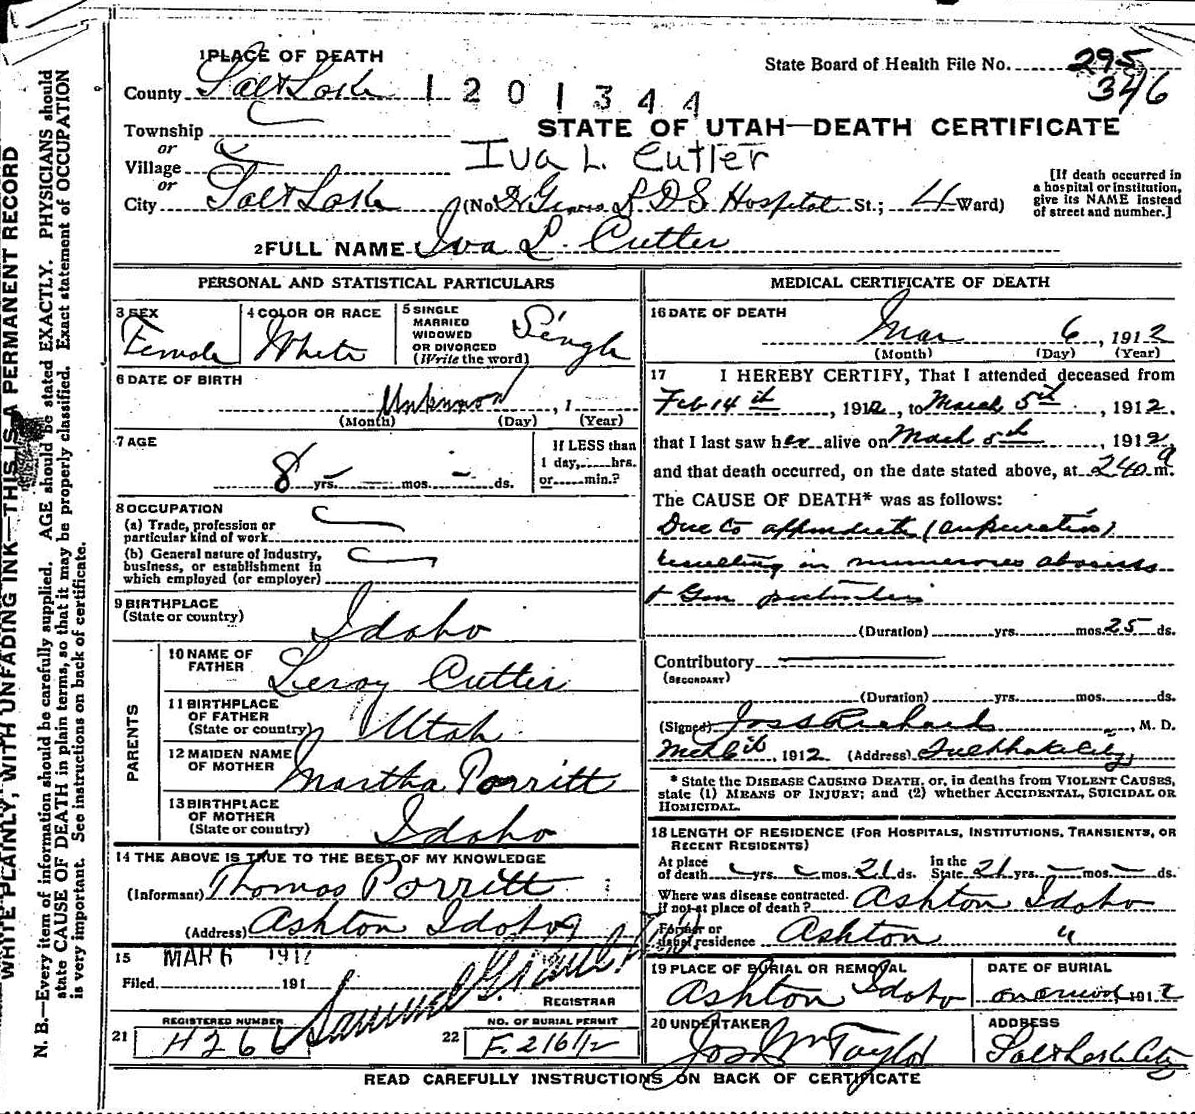 1 PLACE OF DEATH
State Board of Health File No. 295
346
County Salt Lake 1 2 0 1 3 4 4
STATE OF UTAH—DEATH CERTIFICATE
Township
or
Village
Iva L. Cutler
or
City Salt Lake (No. L D S Hospital St.; 4 Ward)
[If death occurred in
a hospital or institution,
give its NAME instead
of street and number.]
2 FULL NAME Iva L. Cutler
PERSONAL AND STATISTICAL PARTICULARS
3 SEX
Female
4 COLOR OR RACE
White
5 SINGLE
MARRIED
WIDOWED
OR DIVORCED
(Write the word)
Single
6 DATE OF BIRTH
Unknown , 1
(Month) (Day) (Year)
7 AGE
8 yrs. — mos. — ds.
If LESS than
1 day, hrs.
or min.?
8 OCCUPATION
(a) Trade, profession or
particular kind of work
(b) General nature of industry,
business, or establishment in
which employed (or employer)
9 BIRTHPLACE
(State or country)
Idaho
PARENTS
10 NAME OF
FATHER
Leroy Cutler
11 BIRTHPLACE
OF FATHER
(State or country)
Utah
12 MAIDEN NAME
OF MOTHER
Martha Porritt
13 BIRTHPLACE
OF MOTHER
(State or country)
Idaho
14 THE ABOVE IS TRUE TO THE BEST OF MY KNOWLEDGE
(Informant) Thomas Porritt
(Address) Ashton Idaho
15
MAR 6 1912
Filed 191
Samuel G.
REGISTRAR
21
REGISTERED NUMBER
H266
22
NO. OF BURIAL PERMIT
F. 216/12
MEDICAL CERTIFICATE OF DEATH
16 DATE OF DEATH
Mar 6, 1912
(Month) (Day) (Year)
17 I HEREBY CERTIFY, That I attended deceased from
Feb 14th, 1912, to March 5th, 1912.
that I last saw her alive on March 5th, 1912,
and that death occurred, on the date stated above, at 240 a m.
The CAUSE OF DEATH* was as follows:
Due to
resulting in numerous abscess
+ Gen
(Duration) yrs. mos. 25 ds.
Contributory
(SECONDARY)
(Duration) yrs. mos. ds.
(Signed) Jos S Richards, M. D.
Mch 6th, 1912 (Address)
* State the DISEASE CAUSING DEATH, or, in deaths from VIOLENT CAUSES,
state (1) MEANS OF INJURY; and (2) whether ACCIDENTAL, SUICIDAL OR
HOMICIDAL.
18 LENGTH OF RESIDENCE (FOR HOSPITALS, INSTITUTIONS, TRANSIENTS, OR
RECENT RESIDENTS)
At place
of death — yrs. — mos. 21 ds.
In the
State 21 yrs. — mos. — ds.
Where was disease contracted.
if not at place of death? Ashton Idaho
Former or
usual residence Ashton "
19 PLACE OF BURIAL OR REMOVAL
Ashton Idaho
DATE OF BURIAL
on arrival 1912
20 UNDERTAKER
Jos Wm Taylor
ADDRESS
Salt Lake City
READ CAREFULLY INSTRUCTIONS ON BACK OF CERTIFICATE
WRITE PLAINLY, WITH UNFADING INK—THIS IS A PERMANENT RECORD
N. B.—Every item of information should be carefully supplied. AGE should be stated EXACTLY. PHYSICIANS should
state CAUSE OF DEATH in plain terms, so that it may be properly classified. Exact statement of OCCUPATION
is very important. See instructions on back of certificate.